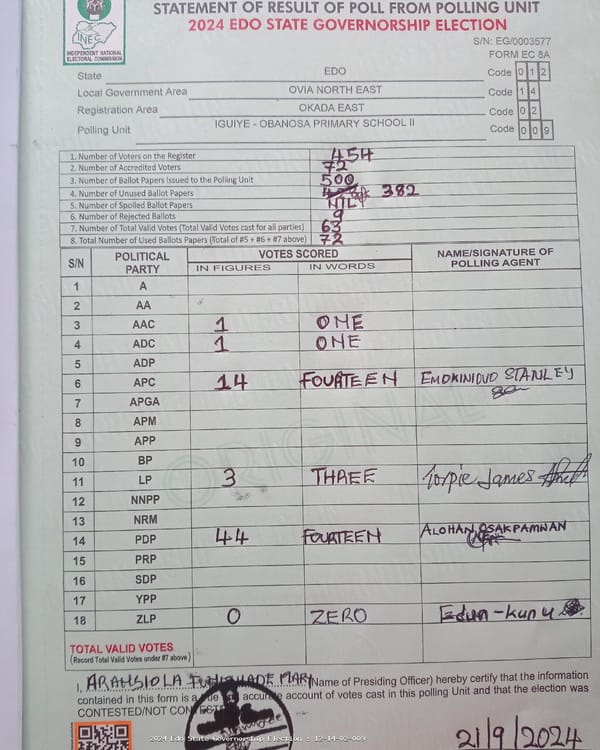 STATEMENT OF RESULT OF POLL FROM POLLING UNIT
2024 EDO STATE GOVERNORSHIP ELECTION
INEC
INDEPENDENT NATIONAL
ELECTORAL COMMISSION
S/N: EG/0003577
FORM EC 8A
State EDO Code 0 1 2
Local Government Area OVIA NORTH EAST Code 1 4
Registration Area OKADA EAST Code 0 2
Polling Unit IGUIYE - OBANOSA PRIMARY SCHOOL II Code 0 0 9
1. Number of Voters on the Register 454
2. Number of Accredited Voters 72
3. Number of Ballot Papers Issued to the Polling Unit 500
4. Number of Unused Ballot Papers 382
5. Number of Spoiled Ballot Papers NIL
6. Number of Rejected Ballots 9
7. Number of Total Valid Votes (Total Valid Votes cast for all parties) 63
8. Total Number of Used Ballots Papers (Total of #5 + #6 + #7 above) 72
S/N POLITICAL PARTY VOTES SCORED NAME/SIGNATURE OF POLLING AGENT
IN FIGURES IN WORDS
1 A
2 AA
3 AAC 1 ONE
4 ADC 1 ONE
5 ADP
6 APC 14 FOURTEEN STANLEY
7 APGA
8 APM
9 APP
10 BP
11 LP 3 THREE James
12 NNPP
13 NRM
14 PDP 44 FOURTEEN ALOHAN OSAKPAMWAN
15 PRP
16 SDP
17 YPP
18 ZLP 0 ZERO Edun-kunu
ORIGINAL
TOTAL VALID VOTES
(Record Total Valid Votes under #7 above)
I, MARY (Name of Presiding Officer) hereby certify that the information
contained in this form is a true and accurate account of votes cast in this polling Unit and that the election was
CONTESTED/NOT CONTESTED
2024 Edo State Governorship Election : 12-14-02-009
21/9/2024